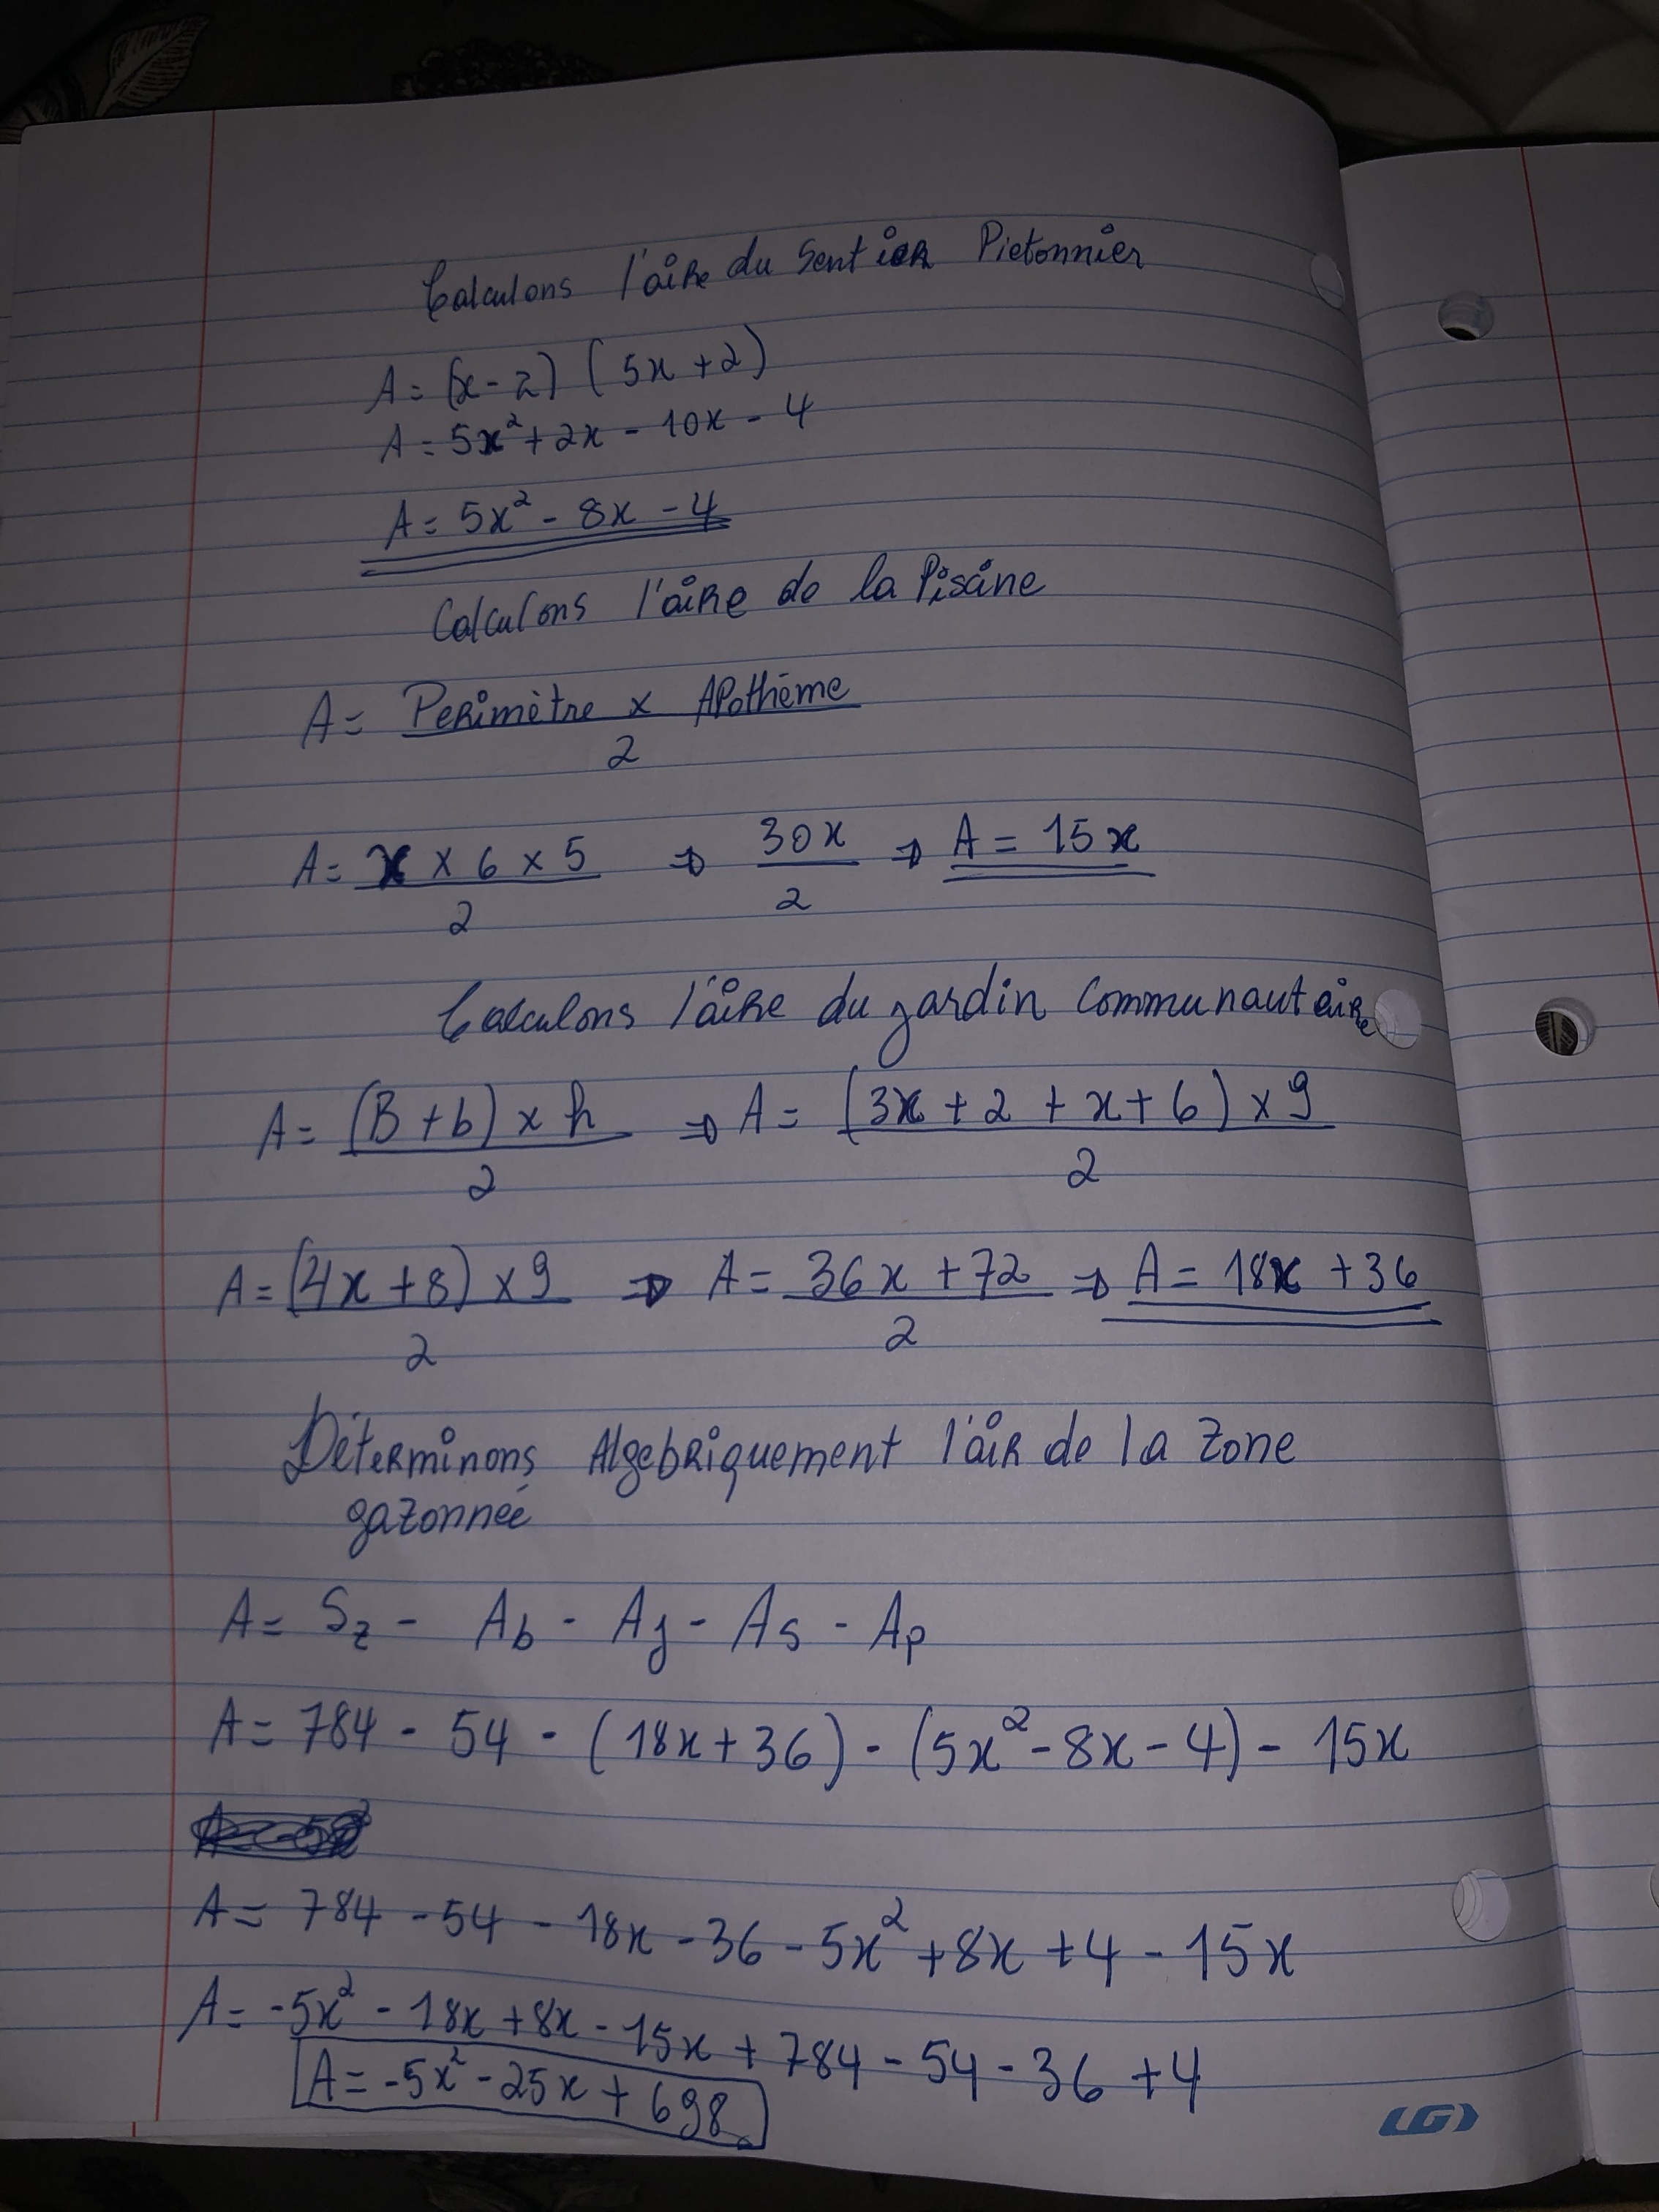 Calculons l'aire du Sentier Pietonnier
A = (x - 2) (5x + 2)
A = 5x² + 2x - 10x - 4
A = 5x² - 8x - 4
Calculons l'aire de la Pisine
A = Perimètre x APothème / 2
A = x × 6 × 5 / 2 ⇒ 30x / 2 ⇒ A = 15x
Calculons l'aire du jardin Communautaire
A = (B + b) × h / 2 ⇒ A = (3x + 2 + x + 6) × 9 / 2
A = (4x + 8) × 9 / 2 ⇒ A = 36x + 72 / 2 ⇒ A = 18x + 36
Déterminons Algebriquement l'air de la Zone
gazonneé
A = Sz - Ab - Aj - As - Ap
A = 784 - 54 - (18x + 36) - (5x² - 8x - 4) - 15x
A = 784 - 54 - 18x - 36 - 5x² + 8x + 4 - 15x
A = -5x² - 18x + 8x - 15x + 784 - 54 - 36 + 4
A = -5x² - 25x + 698
LG